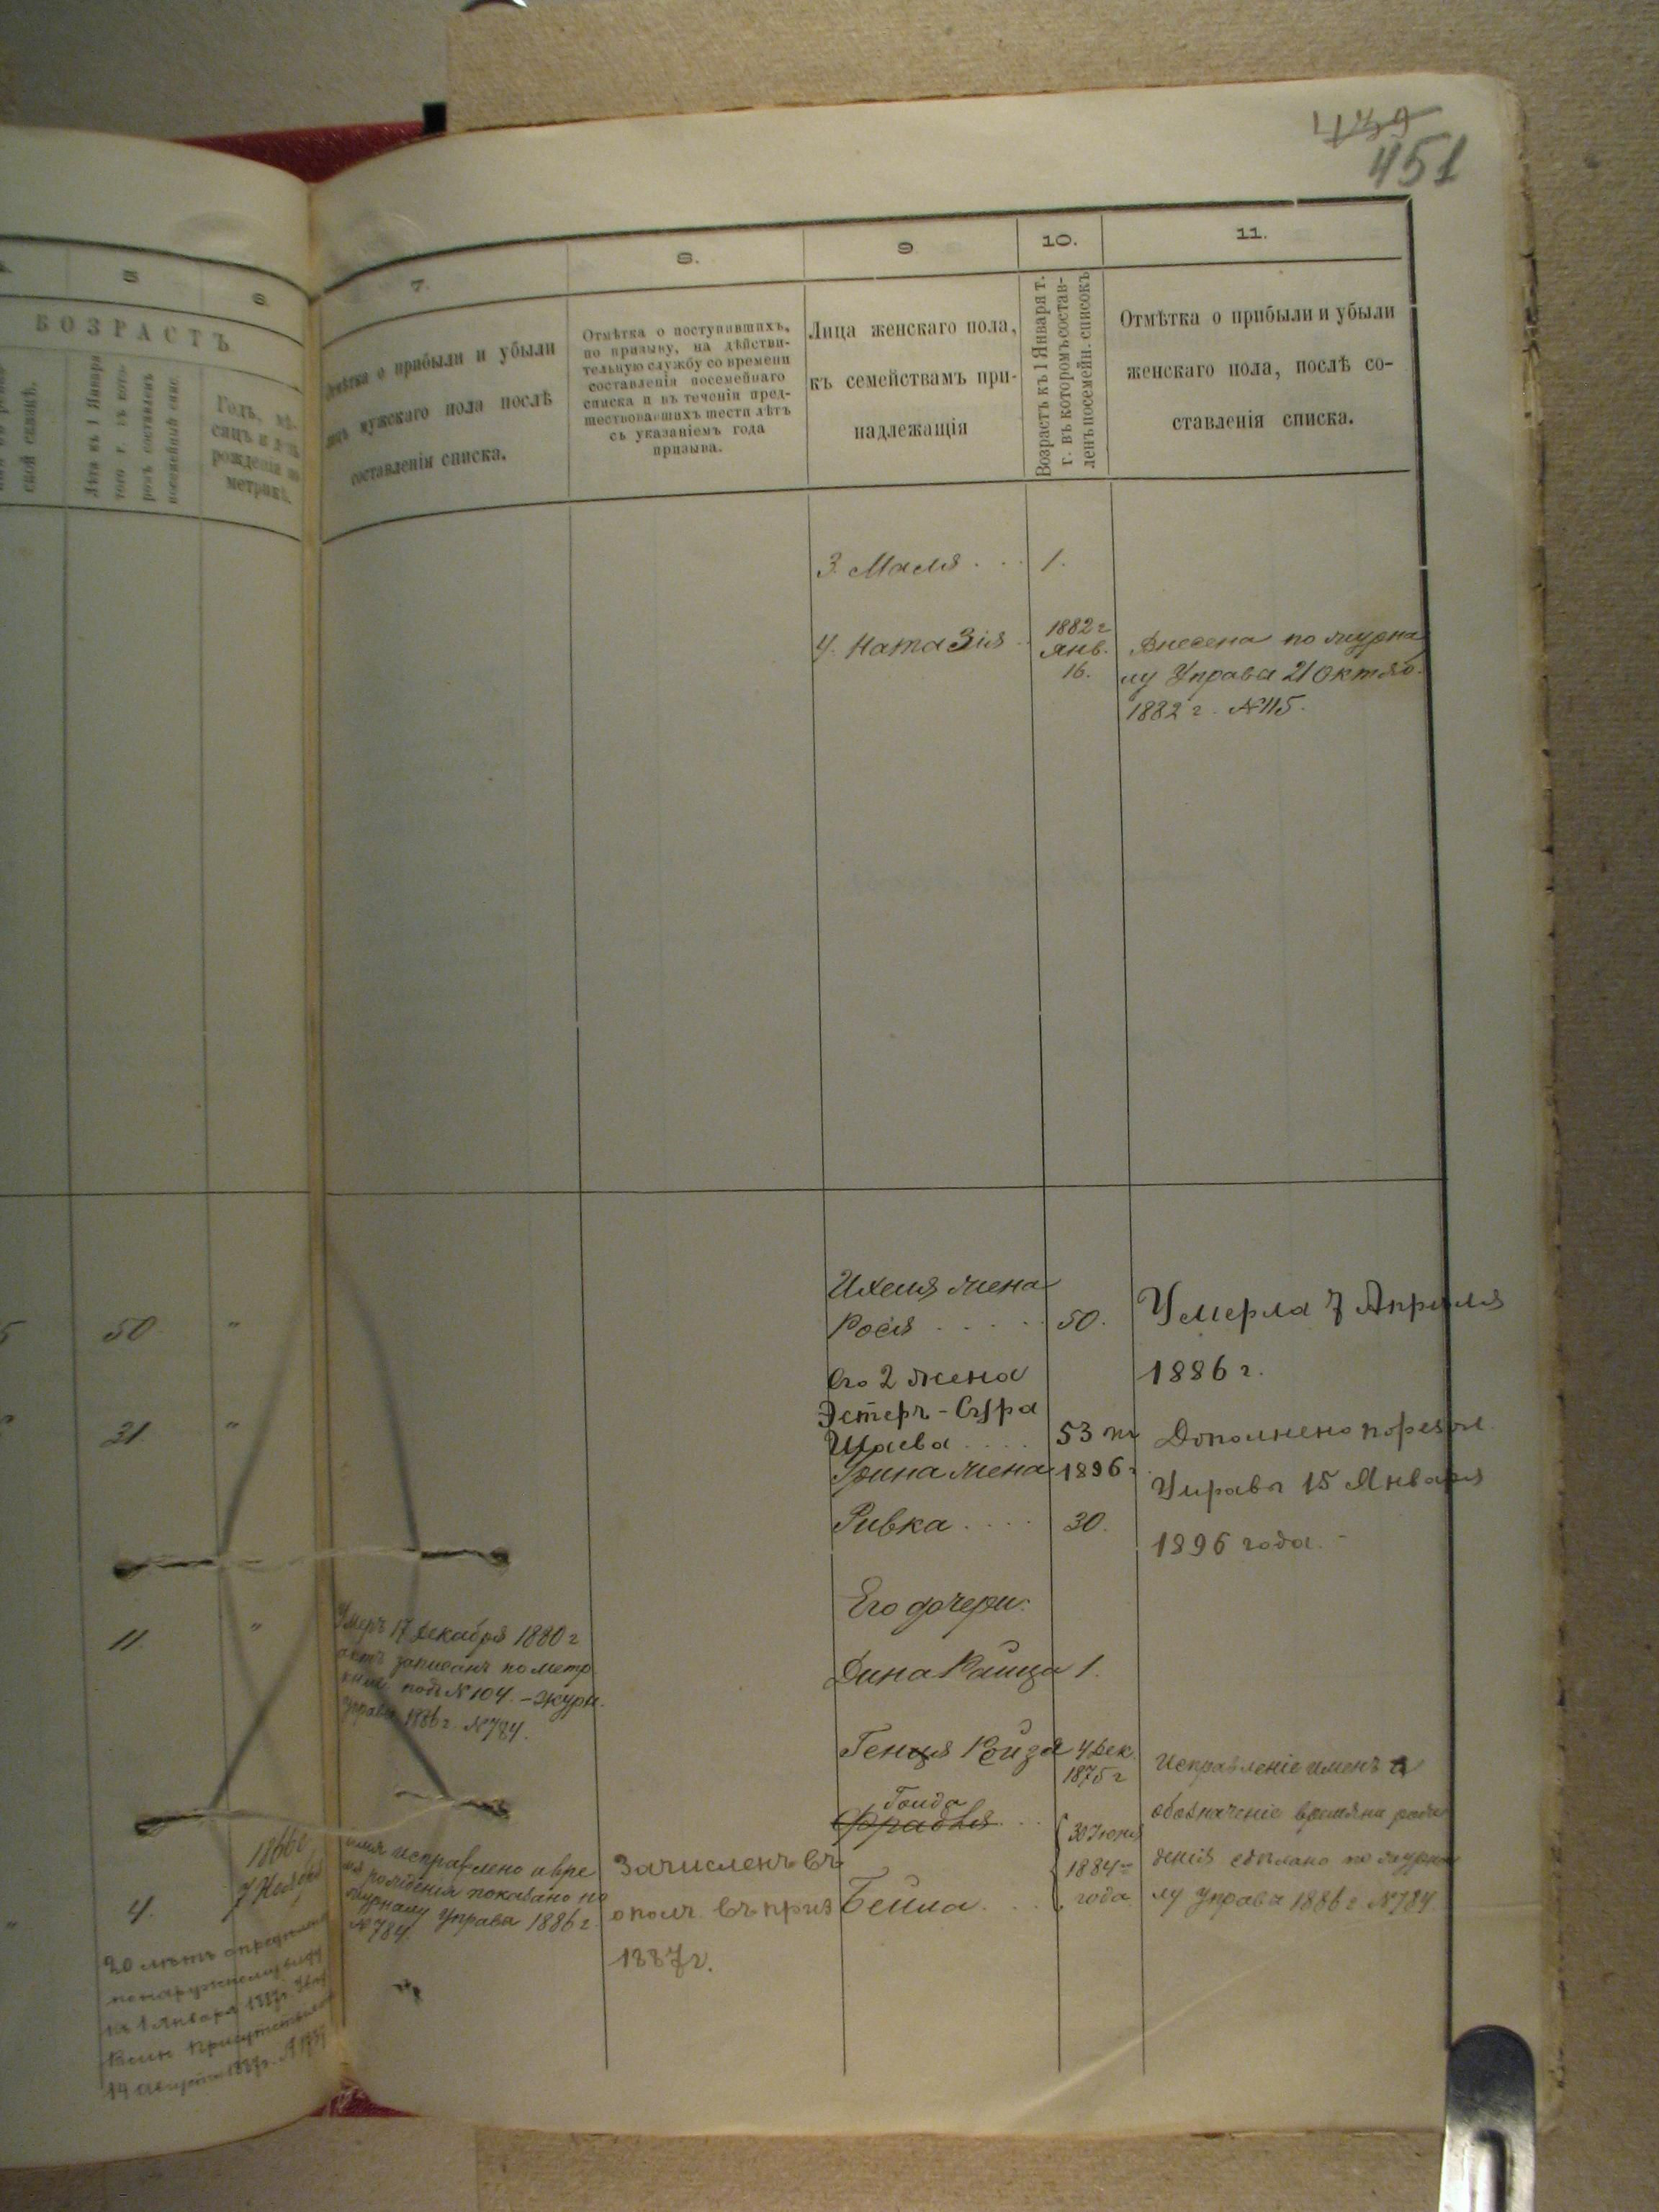 451
5
6
7.
8.
9
10.
11.
ВОЗРАСТЪ
ской сказкѣ.
Лѣта къ 1 Января
того г. въ кото-
ромъ составленъ
посемейный спис.
Годъ, мѣ-
сяцъ и день
рожденія по
метрикѣ.
Отмѣтка о прибыли и убыли
лицъ мужскаго пола послѣ
составленія списка.
Отмѣтка о поступившихъ,
по призыву, на дѣйстви-
тельную службу со времени
составленія посемейнаго
списка и въ теченіи пред-
шествовавшихъ шести лѣтъ
съ указаніемъ года
призыва.
Лица женскаго пола,
къ семействамъ при-
надлежащія
Возрастъ къ 1 Января т.
г. въ которомъ состав-
ленъ посемейн. списокъ
Отмѣтка о прибыли и убыли
женскаго пола, послѣ со-
ставленія списка.
3. Маля . . . 1.
4. Ната Зля 1882 г Янв. 16.
Внесена по журна
лу Управы 21 Октяб.
1882 г. №115.
50 "
31 "
11 "
Ихеля жена
Рося . . . . . 50.
Умерла 7 Апреля
1886 г.
Его 2 жена
Эстеръ-Сура
Шаева . . . . 53 л
1896 г
Дополнено по резол.
Управы 15 Января
1896 года. -
жена
Ривка . . . . 30.
Его дочери:
Дина Раица 1.
Умеръ 17 Декабря 1880 г
актъ записанъ по метр
книг. подъ №104. - Журн.
управы 1886 г. №784.
Генця Ройза 4 Дек.
1875 г
Голда
Фрадля . . .
Бейла . . .
30 Іюня
1884
года
Исправленіе именъ и
обозначеніе времяни рож
денія сдѣлано по журна
лу управы 1886 г. №784
4.
1866 г
имя исправлено и вре
мя рожденія показано по
журналу Управы 1886 г.
№784.
Зачисленъ въ
ополч. въ приз
1887 г.
20 лѣтъ опредѣленъ
по наружному виду
къ 1 Января 1887г.
Воин. Присутствіемъ
14 Августа 1887г.